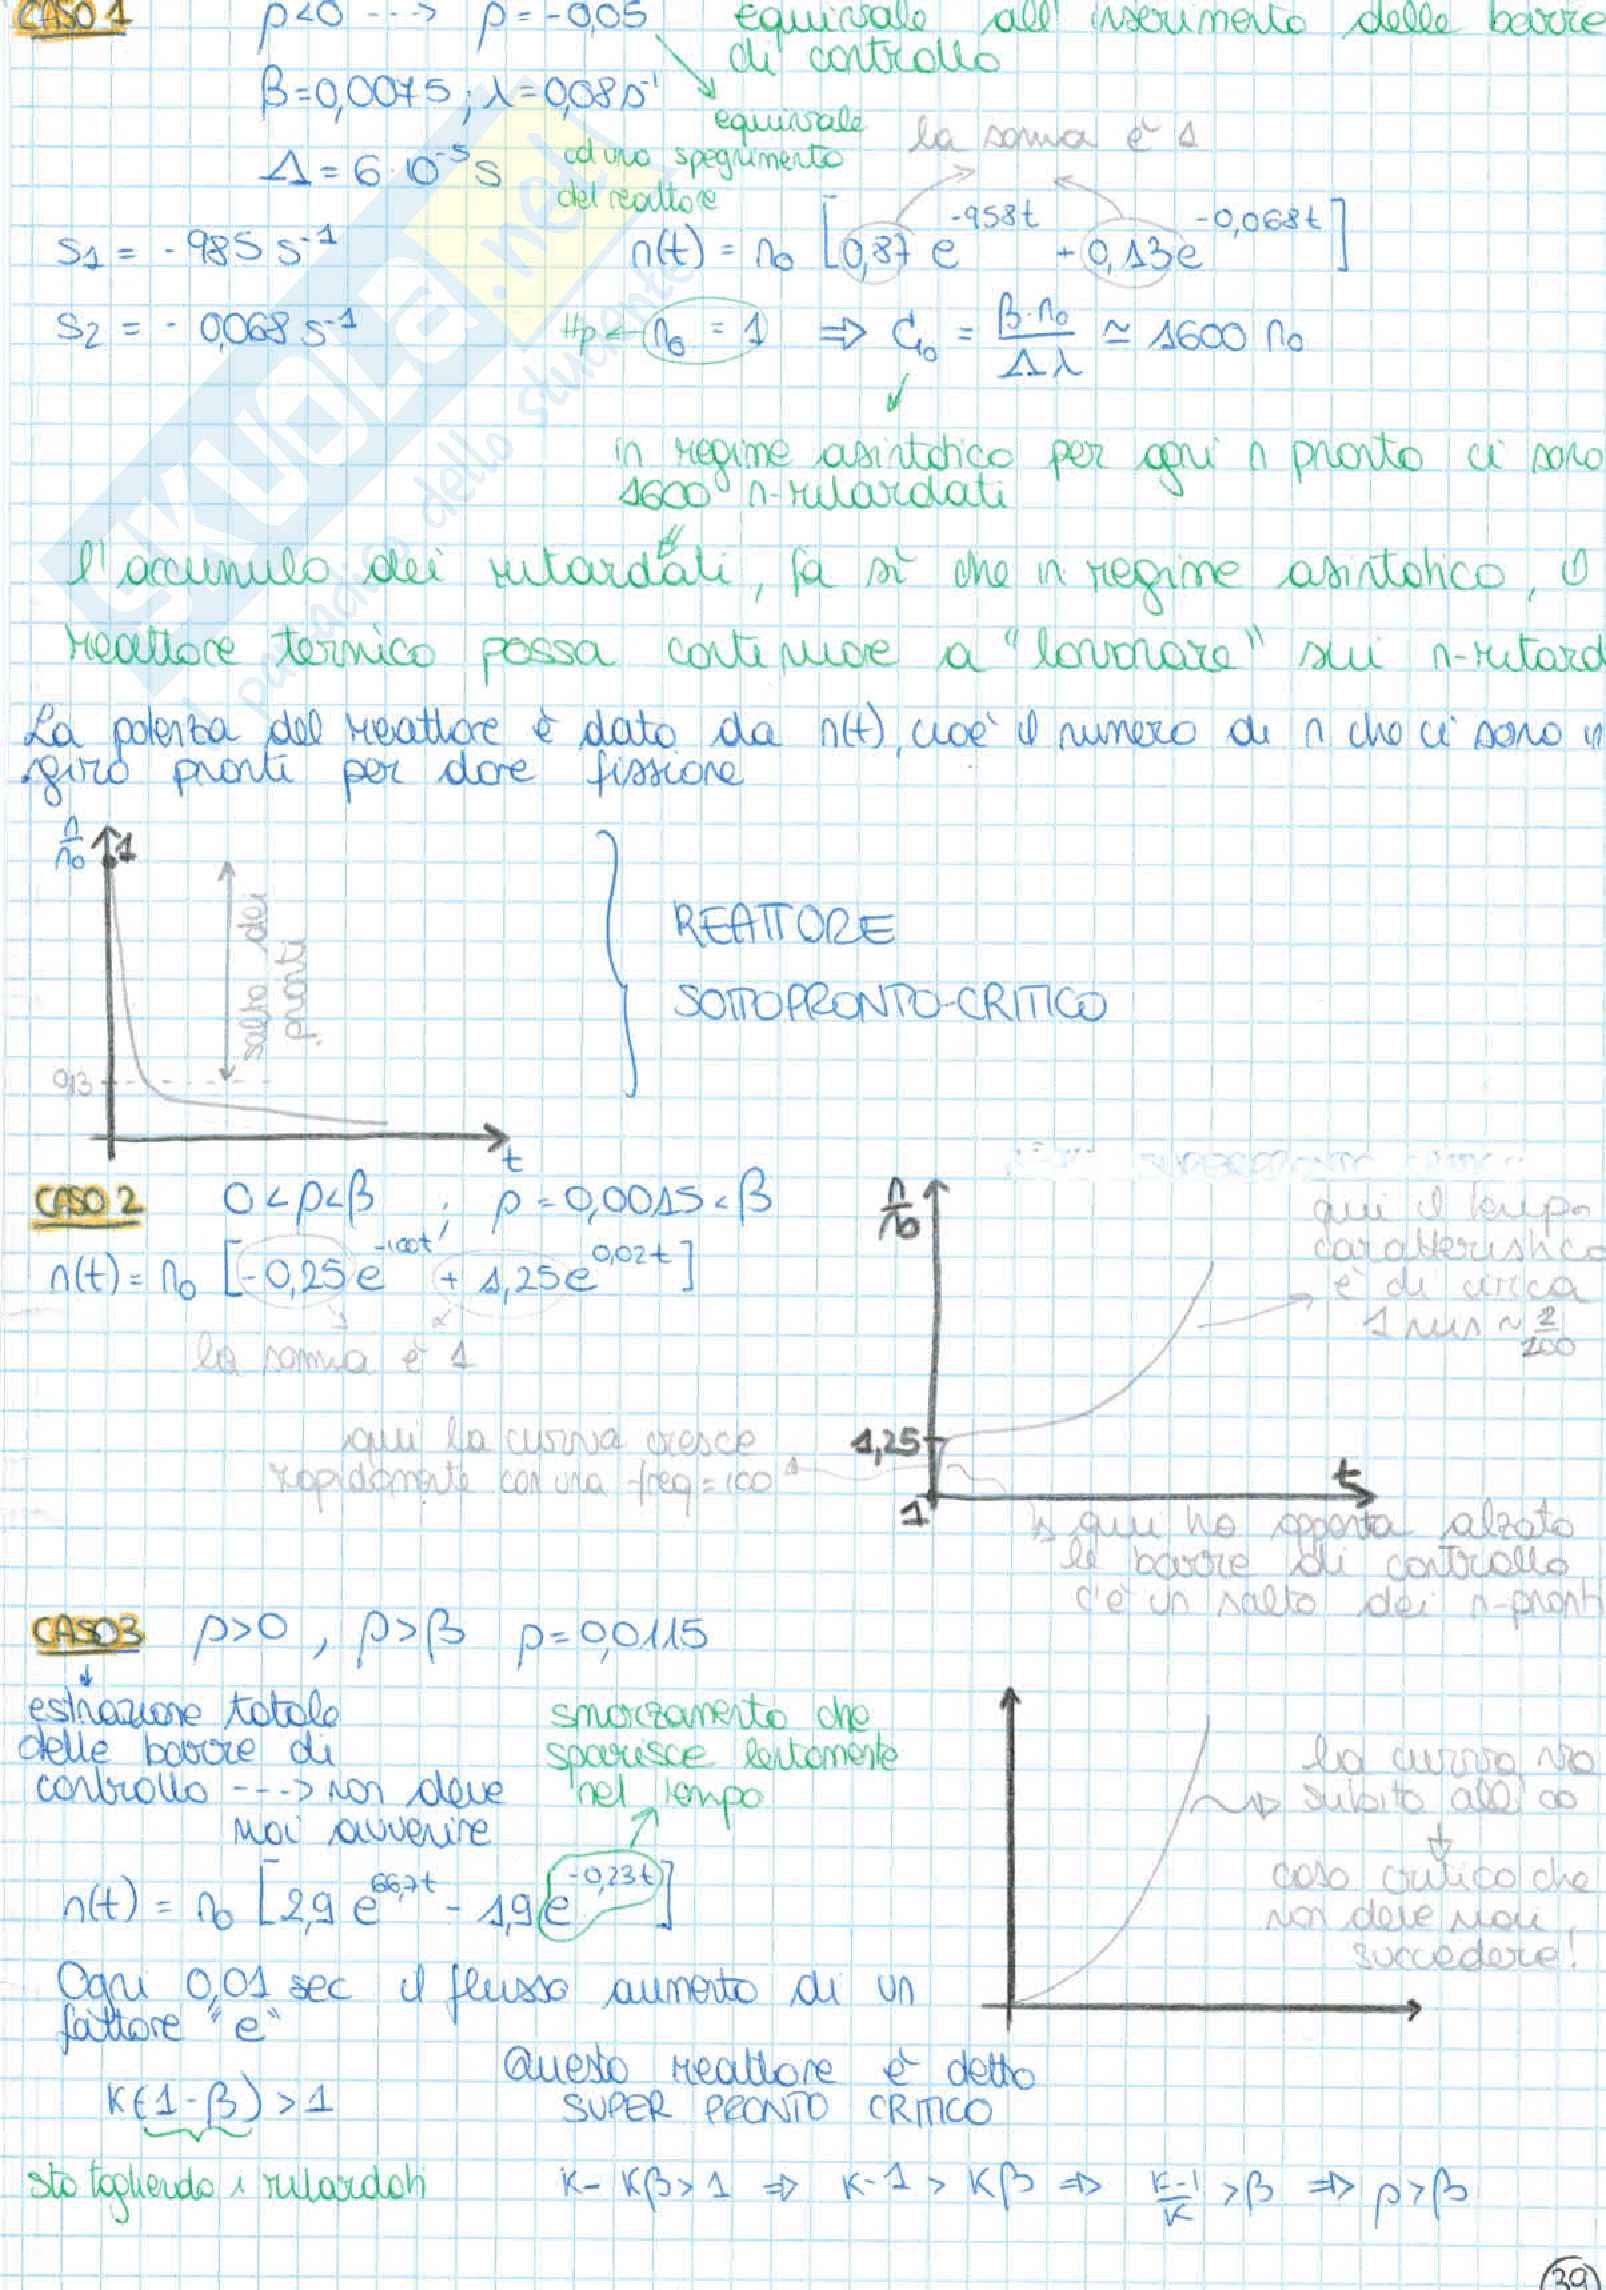 CASO 1 ρ<0 ---> ρ = -0,05 equivale all'inserimento delle barre
di controllo
β=0,0075 ; λ=0,08 s⁻¹
equivale
ad uno spegnimento
del reattore
Λ = 6·10⁻⁵ s
la somma è 1
S1 = -985 s⁻¹ n(t) = n₀ [0,87 e^-958t + 0,13 e^-0,068t]
S2 = -0,068 s⁻¹ Hp ← n₀ = 1 ⇒ C₀ = β·n₀/Λλ ≃ 1600 n₀
in regime asintotico per ogni n pronto ci sono
1600 n-ritardati
l'accumulo dei ritardati, fa sì che in regime asintotico, il
reattore termico possa continuare a "lavorare" sui n-ritard
La potenza del reattore è data da n(t), cioè il numero di n che ci sono in
giro pronti per dare fissione
n/n₀ 1
salto dei
pronti
0,13
t
REATTORE
SOTTOPRONTO-CRITICO
CASO 2 0<ρ<β ; ρ = 0,0015 < β
n(t) = n₀ [-0,25 e^-100t + 1,25 e^0,02t]
la somma è 1
n/n₀
qui il tempo
caratteristico
è di circa
1 min ~ 2/100
1,25
1
t
qui la curva cresce
rapidamente con una freq=100
qui ho appena alzato
le barre di controllo
c'è un salto dei n-pronti
CASO 3 ρ>0 , ρ>β ρ=0,0115
estrazione totale
delle barre di
controllo ---> non deve
mai avvenire
smorzamento che
sparisce lentamente
nel tempo
n(t) = n₀ [2,9 e^66,7t - 1,9 e^-0,23t]
la curva va
subito all'∞
caso critico che
non deve mai
succedere!
Ogni 0,01 sec il flusso aumenta di un
fattore "e"
Questo reattore è detto
SUPER PRONTO CRITICO
K(1-β) > 1
sto togliendo i ritardati
K - Kβ > 1 ⇒ K-1 > Kβ ⇒ K-1/K > β ⇒ ρ>β
39
SKUOLA.net
il paradiso dello studente